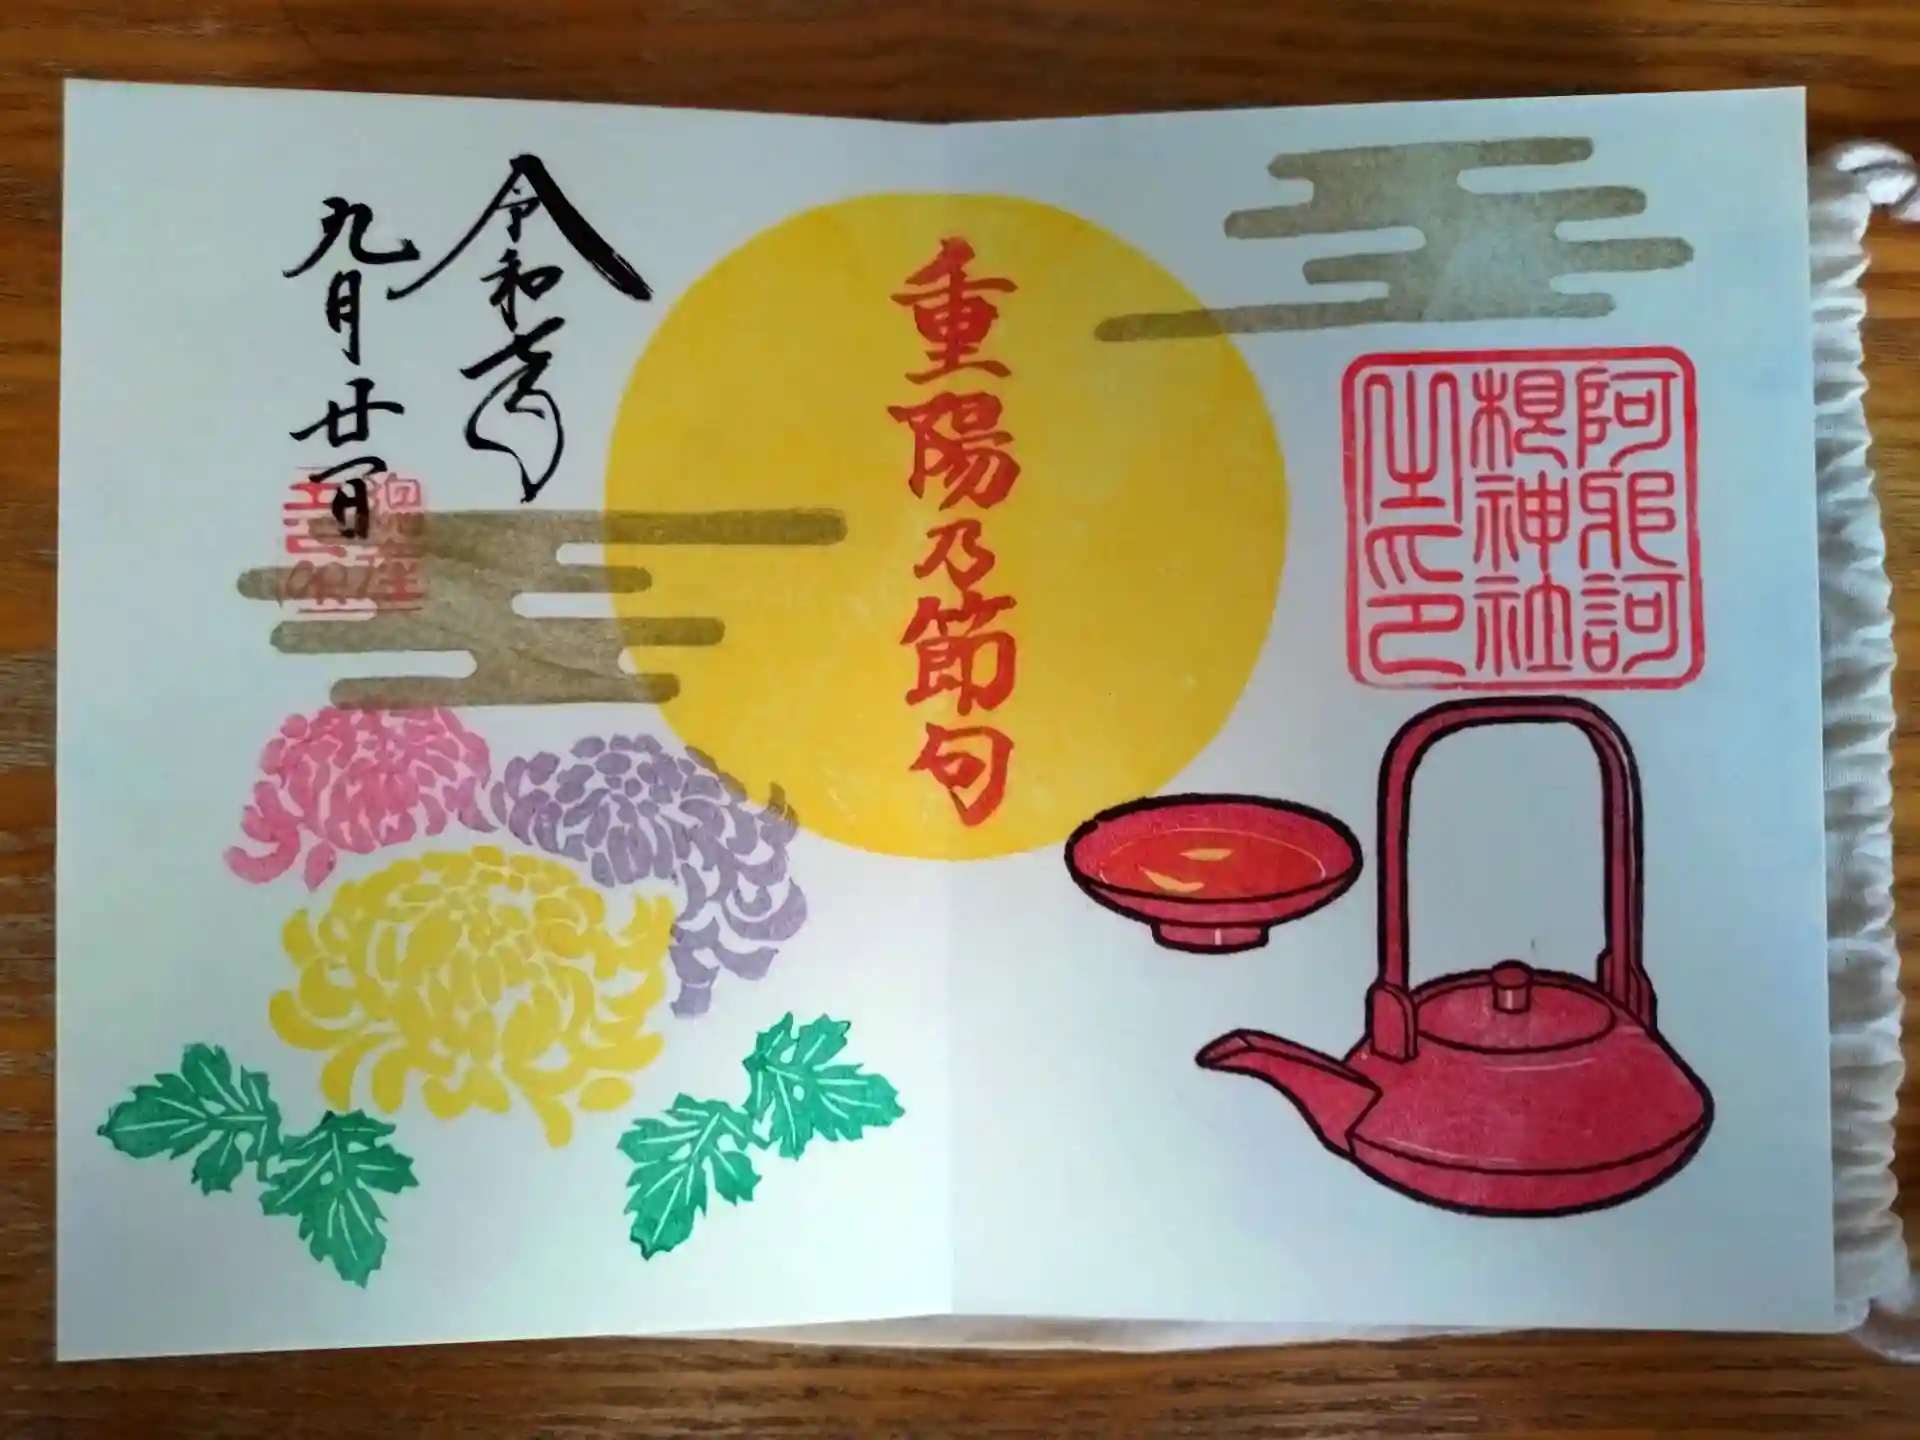 阿邪訶
根神社
之印
重陽乃節句
令和七年
九月廿一日